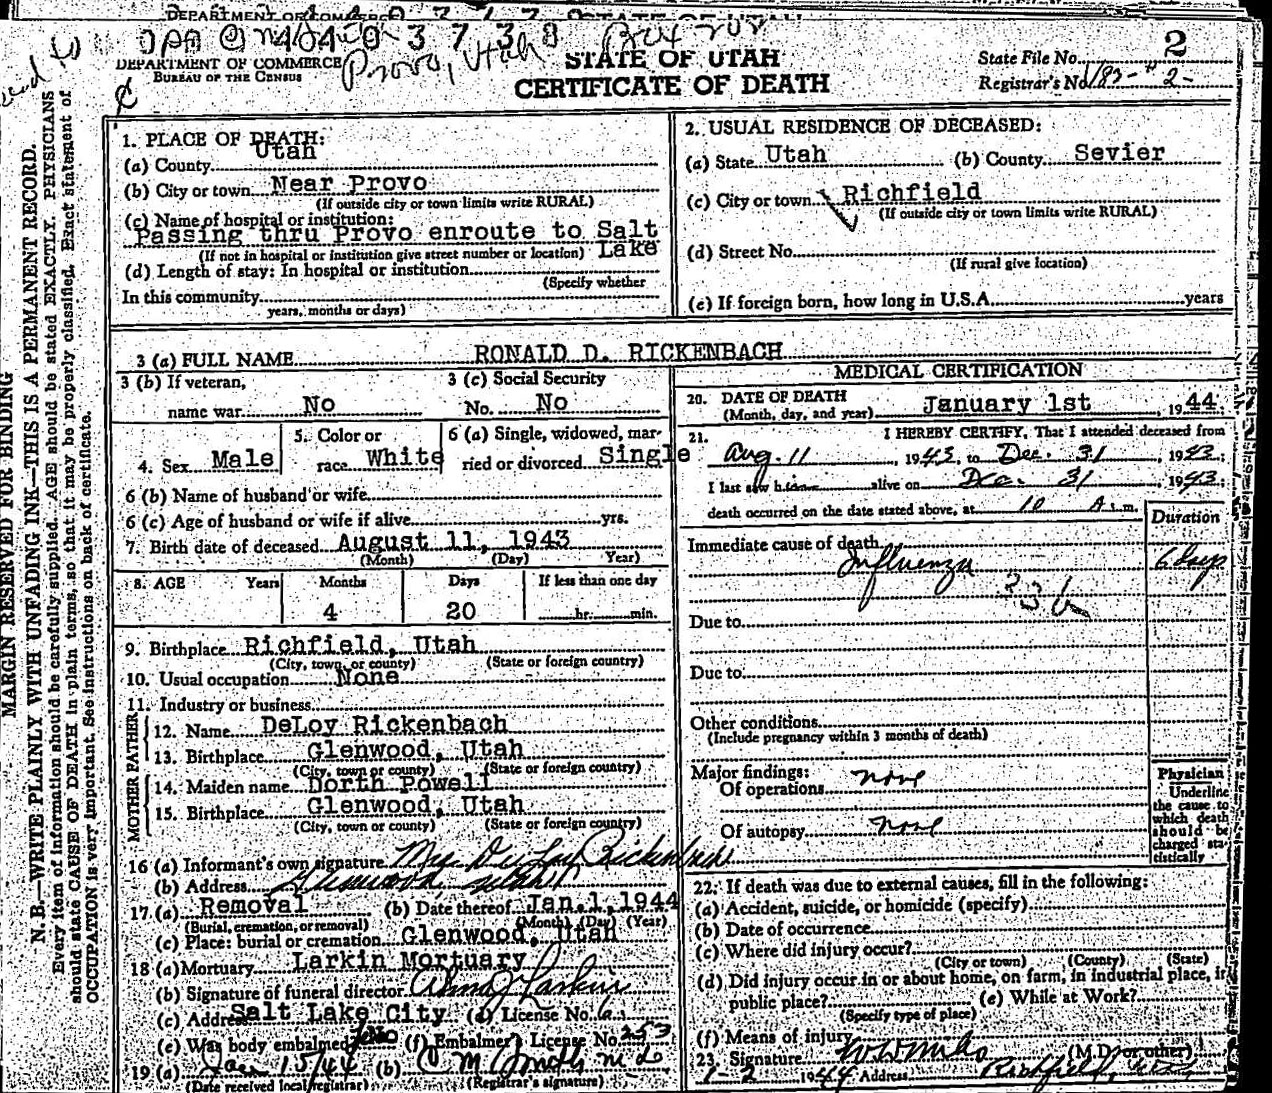 DEPARTMENT OF COMMERCE
STATE OF UTAH
Box 202
Provo, Utah
DEPARTMENT OF COMMERCE
BUREAU OF THE CENSUS
STATE OF UTAH
CERTIFICATE OF DEATH
State File No. 2
Registrar's No. 183-#2-
MARGIN RESERVED FOR BINDING
N. B.—WRITE PLAINLY WITH UNFADING INK—THIS IS A PERMANENT RECORD.
Every item of information should be carefully supplied. AGE should be stated EXACTLY. PHYSICIANS
should state CAUSE OF DEATH in plain terms, so that it may be properly classified. Exact statement of
OCCUPATION is very important. See instructions on back of certificate.
1. PLACE OF DEATH:
(a) County Utah
(b) City or town Near Provo
(If outside city or town limits write RURAL)
(c) Name of hospital or institution:
Passing thru Provo enroute to Salt
Lake
(If not in hospital or institution give street number or location)
(d) Length of stay: In hospital or institution
(Specify whether
In this community
years, months or days)
2. USUAL RESIDENCE OF DECEASED:
(a) State Utah (b) County Sevier
(c) City or town Richfield
(If outside city or town limits write RURAL)
(d) Street No.
(If rural give location)
(e) If foreign born, how long in U.S.A. years
3 (a) FULL NAME RONALD D. RICKENBACH
3 (b) If veteran,
name war No
3 (c) Social Security
No. No
4. Sex Male
5. Color or
race White
6 (a) Single, widowed, mar-
ried or divorced Single
6 (b) Name of husband or wife
6 (c) Age of husband or wife if alive yrs.
7. Birth date of deceased August 11, 1943
(Month) (Day) Year)
8. AGE Years Months Days If less than one day
4 20 hr. min.
9. Birthplace Richfield, Utah
(City, town, or county) (State or foreign country)
10. Usual occupation None
11. Industry or business
FATHER
12. Name DeLoy Rickenbach
13. Birthplace Glenwood, Utah
(City, town or county) (State or foreign country)
MOTHER
14. Maiden name Dorth Powell
15. Birthplace Glenwood, Utah
(City, town or county) (State or foreign country)
16 (a) Informant's own signature Mrs. De Loy Rickenbach
(b) Address Glenwood Utah
17. (a) Removal (b) Date thereof Jan. 1, 1944
(Burial, cremation, or removal) (Month) (Day) (Year)
(c) Place: burial or cremation Glenwood, Utah
18 (a) Mortuary Larkin Mortuary
(b) Signature of funeral director Alma J Larkin
(c) Address Salt Lake City (d) License No.
(e) Was body embalmed (f) Embalmer's License No. 253
19 (a) Jan 15/44 (b) C M Smith M D
(Date received local registrar) (Registrar's signature)
MEDICAL CERTIFICATION
20. DATE OF DEATH
(Month, day, and year) January 1st, 1944
21. I HEREBY CERTIFY, That I attended deceased from
Aug. 11, 1943, to Dec. 31, 1943
I last saw him alive on Dec. 31, 1943;
death occurred on the date stated above, at 10 A.m.
Duration
Immediate cause of death
Influenza 6 days
33b
Due to
Due to
Other conditions
(Include pregnancy within 3 months of death)
Major findings:
Of operations none
Of autopsy none
Physician
Underline
the cause to
which death
should be
charged sta-
tistically
22. If death was due to external causes, fill in the following:
(a) Accident, suicide, or homicide (specify)
(b) Date of occurrence
(c) Where did injury occur?
(City or town) (County) (State)
(d) Did injury occur in or about home, on farm, in industrial place, in
public place? (e) While at Work?
(Specify type of place)
(f) Means of injury
23. Signature (M.D. or other)
1-2 1944 Address Richfield, Utah